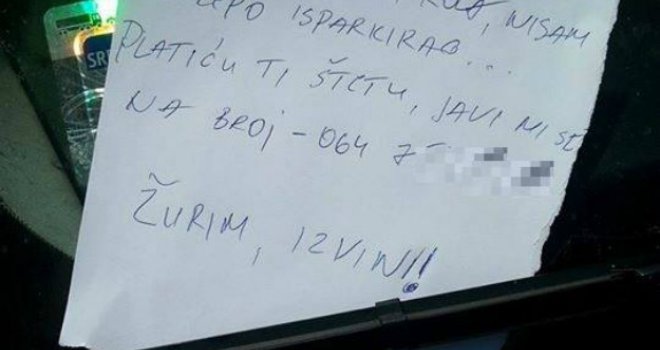 NISAM
LEPO ISPARKIRAO...
PLATIĆU TI ŠTETU, JAVI MI SE
NA BROJ - 064 7
ŽURIM, IZVINI!!
SR